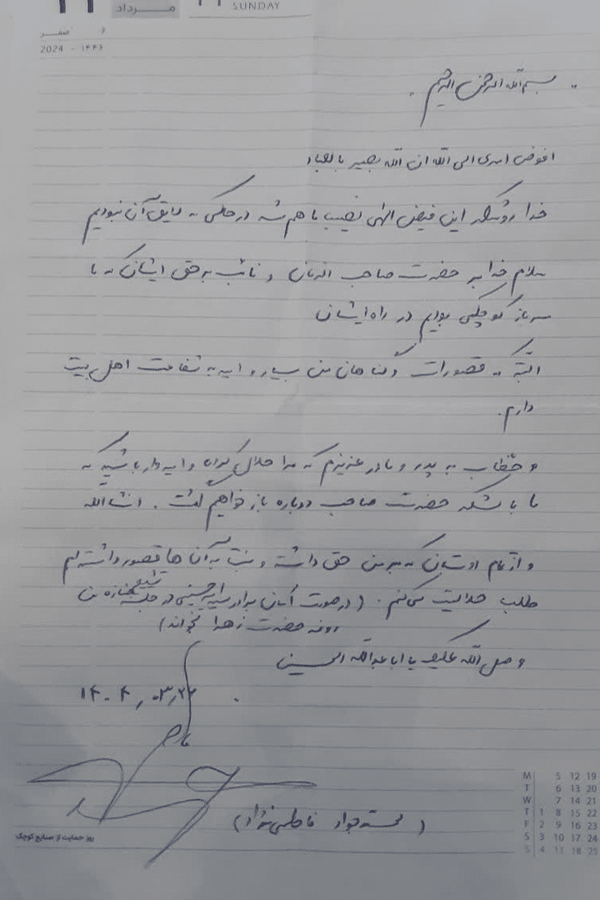 ۱۱ مرداد ۱۱ SUNDAY
صفر
2024 - ۱۴۴۶
بسم الله الرحمن الرحیم
افوض امری الی الله ان الله بصیر بالعباد
خدا رو شکر این فیض الهی نصیب ما هم شد در حالی که لایق آن نبودیم
سلام خدا بر حضرت صاحب الزمان و نائب بر حق ایشان که ما
سرباز کوچکی بودیم در راه ایشان
البته که قصورات و گناهان من بسیار و امید به شفاعت اهل بیت
دارم.
و خطاب به پدر و مادر عزیزم که مرا حلال کرده و امیدوار باشید که
ما با لشکر حضرت صاحب دوباره باز خواهیم گشت. انشاالله
و از تمام دوستان که بر من حق داشته و نسبت به آن ها قصور داشته ام
طلب حلالیت می‌کنم. (در صورت امکان برادر سید حسینی در تشییع جنازه من
روضه حضرت زهرا بخواند)
و صل الله علیک یا ابا عبدالله الحسین
۱۴۰۴٫۰۳٫۲۲
(محمد جواد فاطمی نژاد)
روز حمایت از صنایع کوچک
M 5 12 19
T 6 13 20
W 7 14 21
T 1 8 15 22
F 2 9 16 23
S 3 10 17 24
S 4 11 18 25